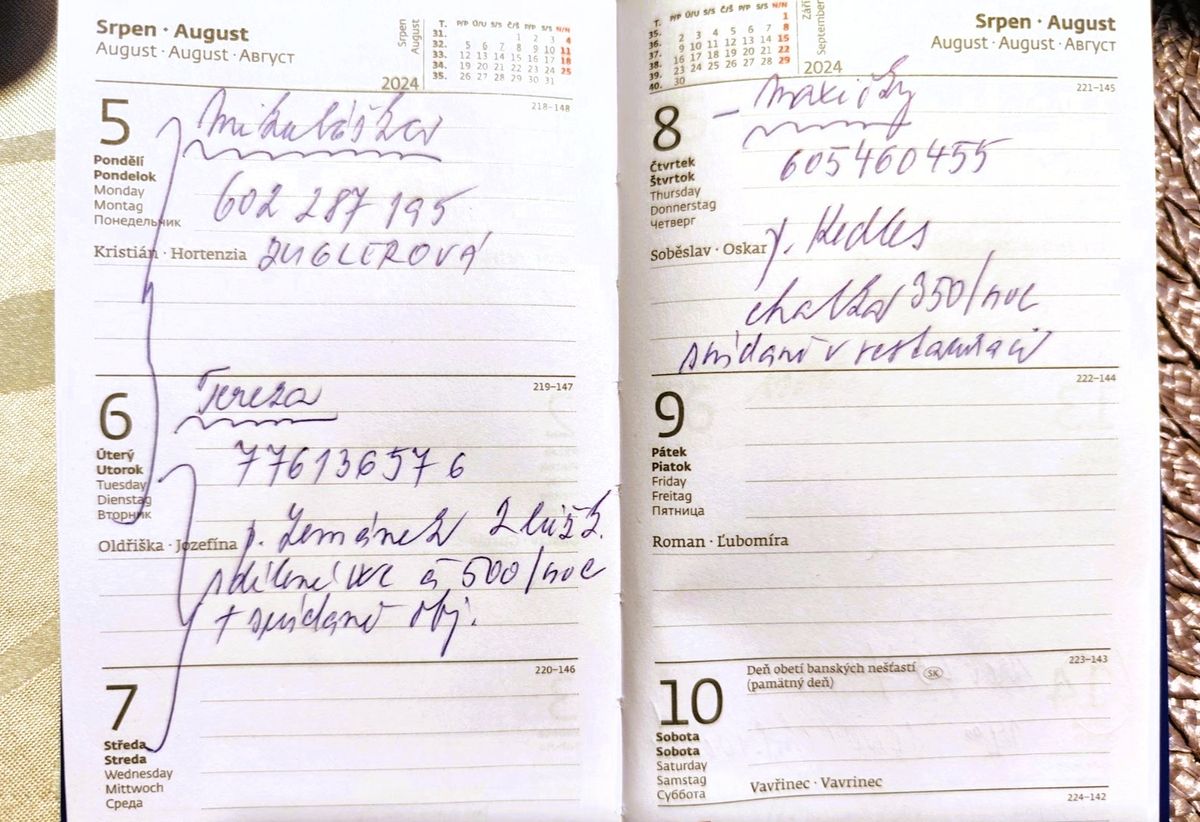 Srpen · August
August · August · Август
Srpen
August
2024
T. P/P Ú/U S/S Č/Š P/P S/S N/N
31. 1 2 3 4
32. 5 6 7 8 9 10 11
33. 12 13 14 15 16 17 18
34. 19 20 21 22 23 24 25
35. 26 27 28 29 30 31
5
218–148
Mikuláška
Pondělí
Pondelok
Monday
Montag
Понедельник
602 287 195
Kristián · Hortenzia
ZUGLEROVÁ
6
219–147
Tereza
Úterý
Utorok
Tuesday
Dienstag
Вторник
776136576
Oldřiška · Jozefína
p. Zemánek 2 lůžk.
sdílené WC á 500/noc
+ snídaně obj.
7
220–146
Středa
Streda
Wednesday
Mittwoch
Среда
T. P/P Ú/U S/S Č/Š P/P S/S N/N
35. 1
36. 2 3 4 5 6 7 8
37. 9 10 11 12 13 14 15
38. 16 17 18 19 20 21 22
39. 23 24 25 26 27 28 29
40. 30
Září
September
2024
Srpen · August
August · August · Август
8
221–145
– Maxičky
Čtvrtek
Štvrtok
Thursday
Donnerstag
Четверг
605460455
Soběslav · Oskar
p. Hedles
chatka 350/noc
snídaně v restauraci
9
222–144
Pátek
Piatok
Friday
Freitag
Пятница
Roman · Ľubomíra
10
223–143
Deň obetí banských nešťastí SK
(pamätný deň)
Sobota
Sobota
Saturday
Samstag
Суббота
Vavřinec · Vavrinec
224–142